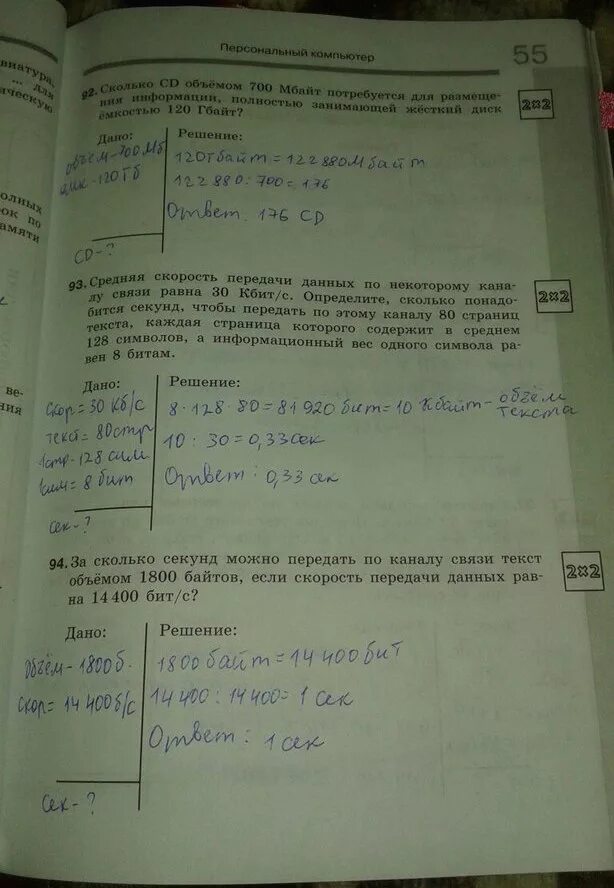 виатура,
... для
ическую
олных
рок по
амяти
ве-
ния
Персональный компьютер
55
92. Сколько CD объёмом 700 Мбайт потребуется для размеще-
ния информации, полностью занимающей жёсткий диск
ёмкостью 120 Гбайт?
2×2
Дано:
Решение:
объём-700Мб
120Гбайт = 122 880Мбайт
диск-120Гб
122 880 : 700 = 176
Ответ. 176 CD
CD-?
93. Средняя скорость передачи данных по некоторому кана-
лу связи равна 30 Кбит/с. Определите, сколько понадо-
бится секунд, чтобы передать по этому каналу 80 страниц
текста, каждая страница которого содержит в среднем
128 символов, а информационный вес одного символа ра-
вен 8 битам.
2×2
Дано:
Решение:
скор = 30 Кб/с
8 · 128 · 80 = 81 920 бит = 10 Кбайт - объём
текста
текст = 80стр
10 : 30 = 0,33сек
1стр-128 сим
1сим = 8 бит
Ответ : 0,33 сек
сек-?
94. За сколько секунд можно передать по каналу связи текст
объёмом 1800 байтов, если скорость передачи данных рав-
на 14 400 бит/с?
2×2
Дано:
Решение:
Объём-1800б.
1800 байт = 14 400 бит
Скор = 14 400б/с
14 400 : 14 400 = 1 сек
Ответ : 1 сек
сек-?